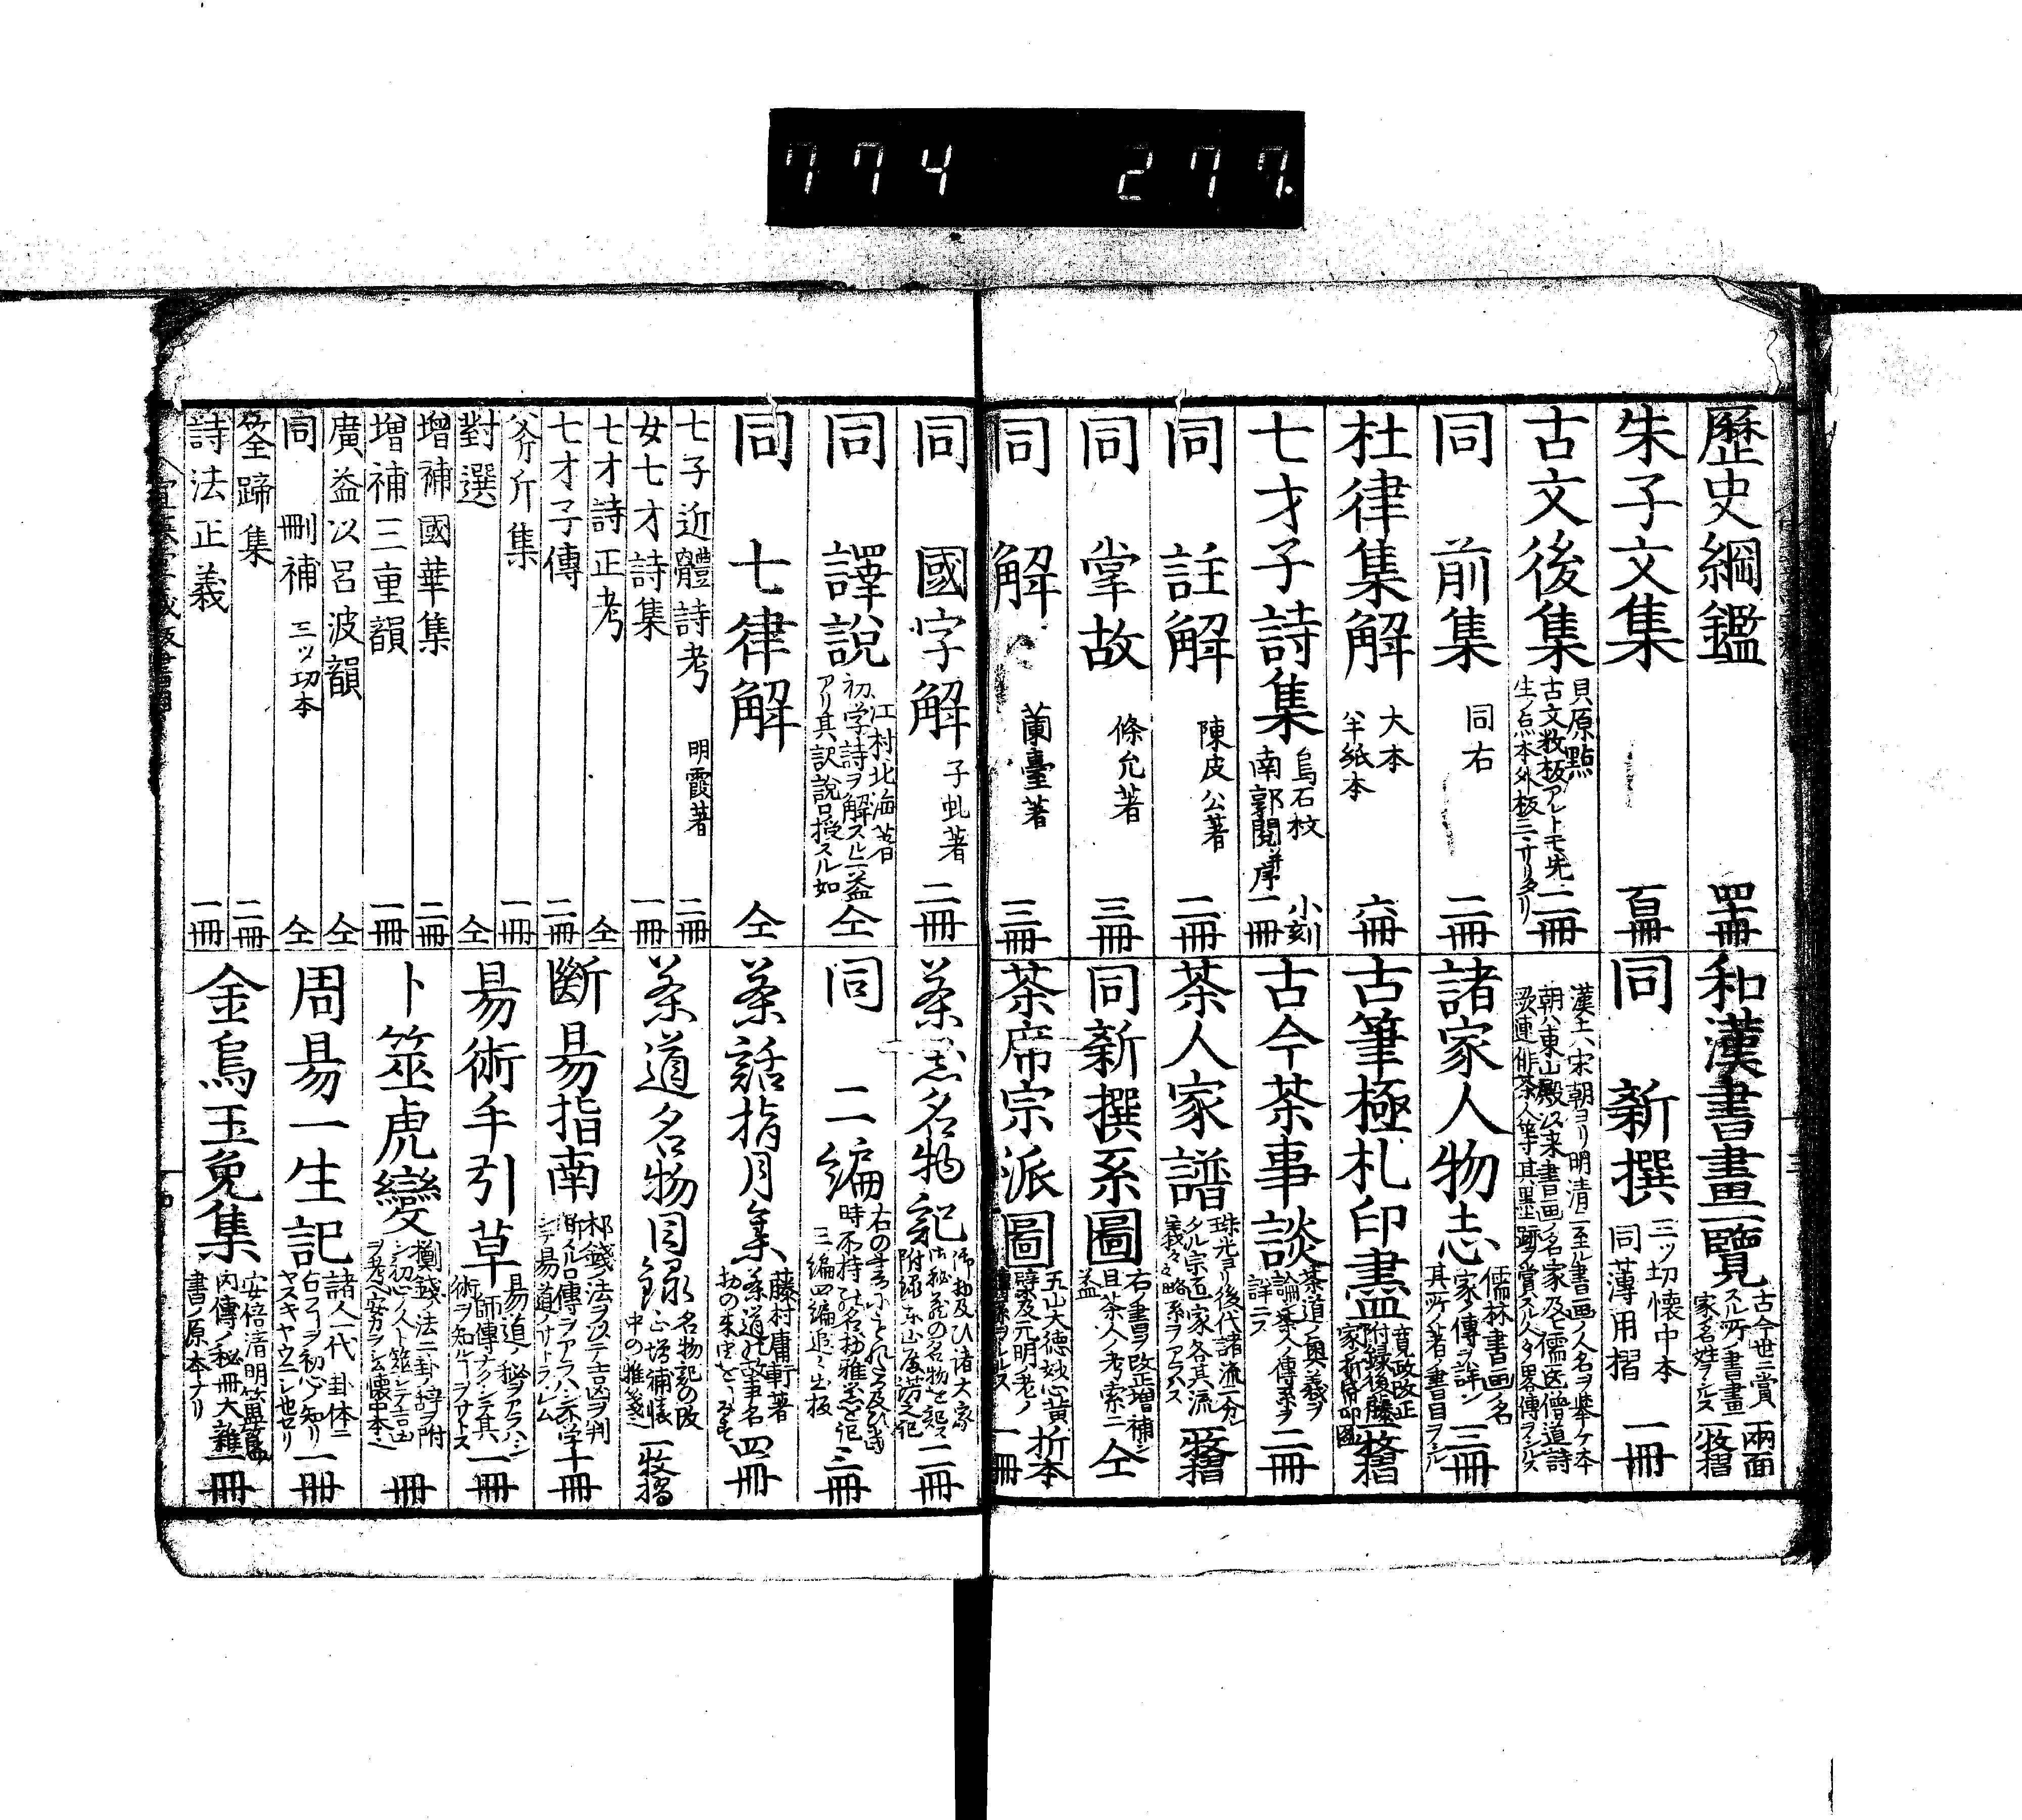 774 277.
歷史綱鑑 四十冊
朱子文集 百冊
古文後集 貝原點 古文数板アレトモ先生ノ点本外板ニナリタリ 二冊
同 前集 同右 二冊
杜律集解 大本 半紙本 六冊
七才子詩集 烏石校 南郭閲并序 小刻 一冊
同 註解 陳皮公著 二冊
同 掌故 條允著 三冊
同 解 蘭臺著 三冊
和漢書畫一覽 古今世ニ賞スル所ノ書畫家ノ名姓ヲシルス 兩面一枚摺
同 新撰 三ツ切懐中本 同薄用摺 一冊
漢土ハ宋朝ヨリ明清ニ至ル書画ノ人名ヲ挙ケ本朝ハ東山殿以来書画ノ名家及ヒ儒医僧道詩歌連俳茶人等其墨跡ヲ賞スル人々畧傳ヲシルス
諸家人物志 儒林書画ノ名家ノ傳ヲ詳ニシ其所ノ著ノ書目ヲシルス 三冊
古筆極札印盡 寛政改正 一枚摺
古今茶事談 茶道ノ奥義ヲ論シ茶人ノ傳系ヲ詳ニス 二冊
茶人家譜 珠光ヨリ後代諸流ニ分タル宗匠家各其流義々々略系ヲアラハス 一枚摺
同新撰系圖 右ノ書ヲ改正増補シ且茶人ノ考索ニ益 仝
茶席宗派圖 五山大徳妙心黄檗及元明老ノ 折本一冊
同 國字解 子虬著 二冊
同 譯說 江村北海著 初学詩ヲ解スルニ益アリ其訳說口授スル如 仝
同 七律解 仝
七子近體詩考 明霞著 二冊
女七才子詩集 一冊
七才詩正考 仝
七才子傳 二冊
斧斤集 一冊
對選 仝
增補國華集 二冊
增補三重韻 一冊
廣益以呂波韻 仝
同 刪補 三ツ切本 仝
筌蹄集 二冊
詩法正義 一冊
茶器名物記 二冊
同 二編 三編四編追々出板 三冊
茶話指月集 藤村庸軒著 四冊
茶道名物目錄 一枚摺
斷易指南 擲錢ノ法ヲ以テ吉凶ヲ判断スル口傳ヲアラハシ 十冊
易術手引草 易道ノ秘ヲアラハシ師傳ナクシテ其術ヲ知ルヿヲサトス 一冊
卜筮虎變 擲錢ノ法ニ卦ノ辞ヲ附シ初心ノ人卜筮シテ吉凶ヲ考ヘ安カラシム懐中本 一冊
周易一生記 諸人一代ノ卦体ニ占フヿヲ初心ノ知リヤスキヤウニシ也セリ 一冊
金烏玉兔集 安倍清明簠簋内傳ノ秘冊大雜書ノ原本ナリ 一冊